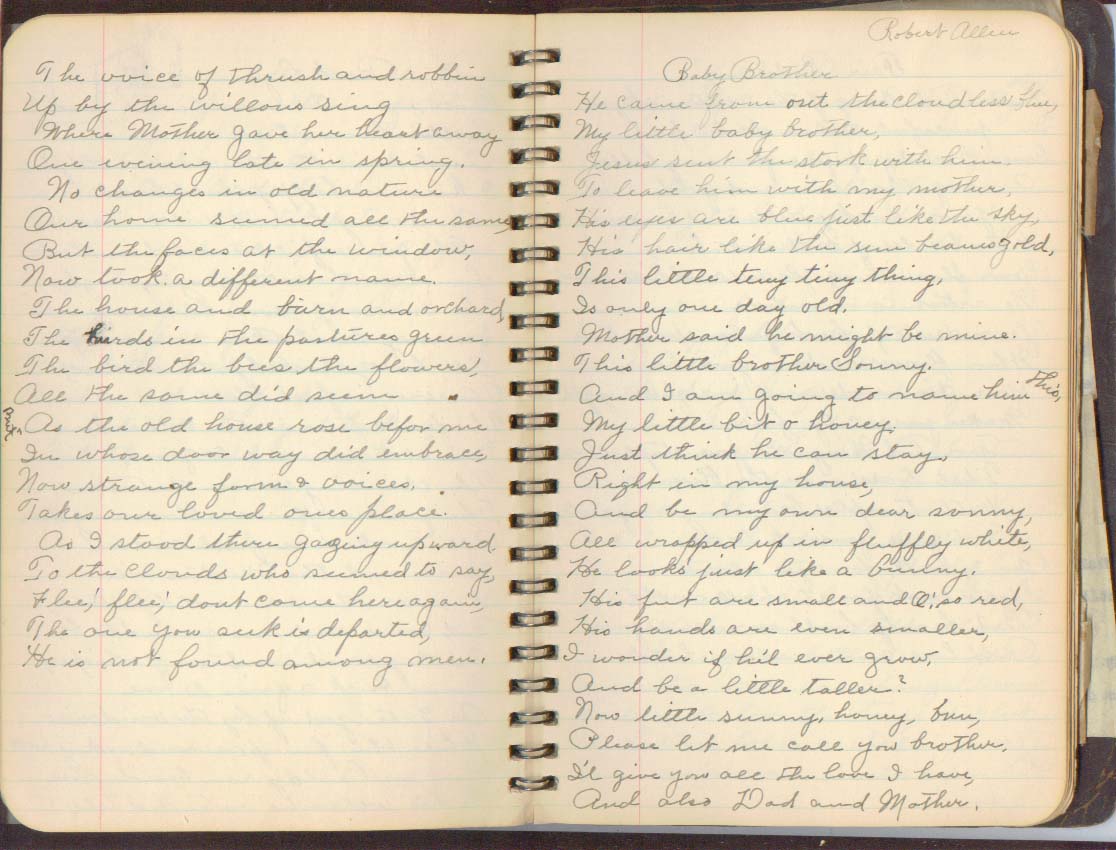 The voice of thrush and robbin
Up by the willows sing
Where Mother gave her heart away
One evening late in spring.
No changes in old nature
Our home seemed all the same,
But the faces at the window,
Now took a different name.
The house and barn and orchard,
The herds in the pastures green
The bird the bees the flowers,
All the same did seem
As the old house rose befor me
In whose door way did embrace,
Now strange form & voices.
Takes our loved ones place.
As I stood there gazing upward
To the clouds who seemed to say,
Flee, flee, dont come here again,
The one you seek is departed,
He is not found among men.
Robert Allen
Baby Brother
He came from out the cloudless blue,
My little baby brother,
Jesus sent the stork with him.
To leave him with my mother,
His eyes are blue just like the sky,
His hair like the sun beams gold,
This little teny tiny thing,
Is only one day old.
Mother said he might be mine.
This little brother Sonny.
And I am going to name him this,
My little bit o honey.
Just think he can stay.
Right in my house,
And be my own dear sonny,
All wrapped up in fluffly white,
He looks just like a bunny.
His feet are small and O', so red,
His hands are even smaller,
I wonder if he'l ever grow,
And be a little taller?
Now little sunny, honey, bun,
Please let me call you brother.
I'l give you all the love I have,
And also Dad and Mother.